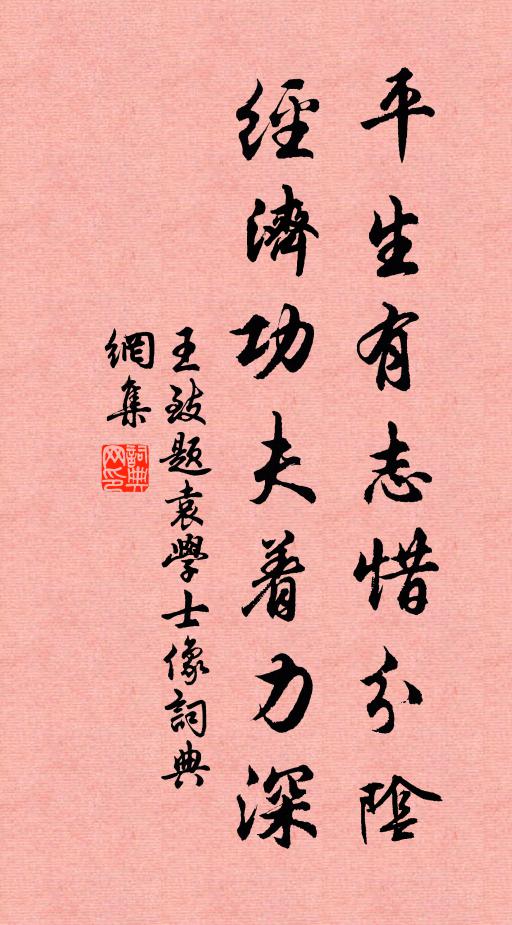 平生有志惜分陰
經濟功夫着力深
王致題袁學士像詞典
網集
詞典
網印